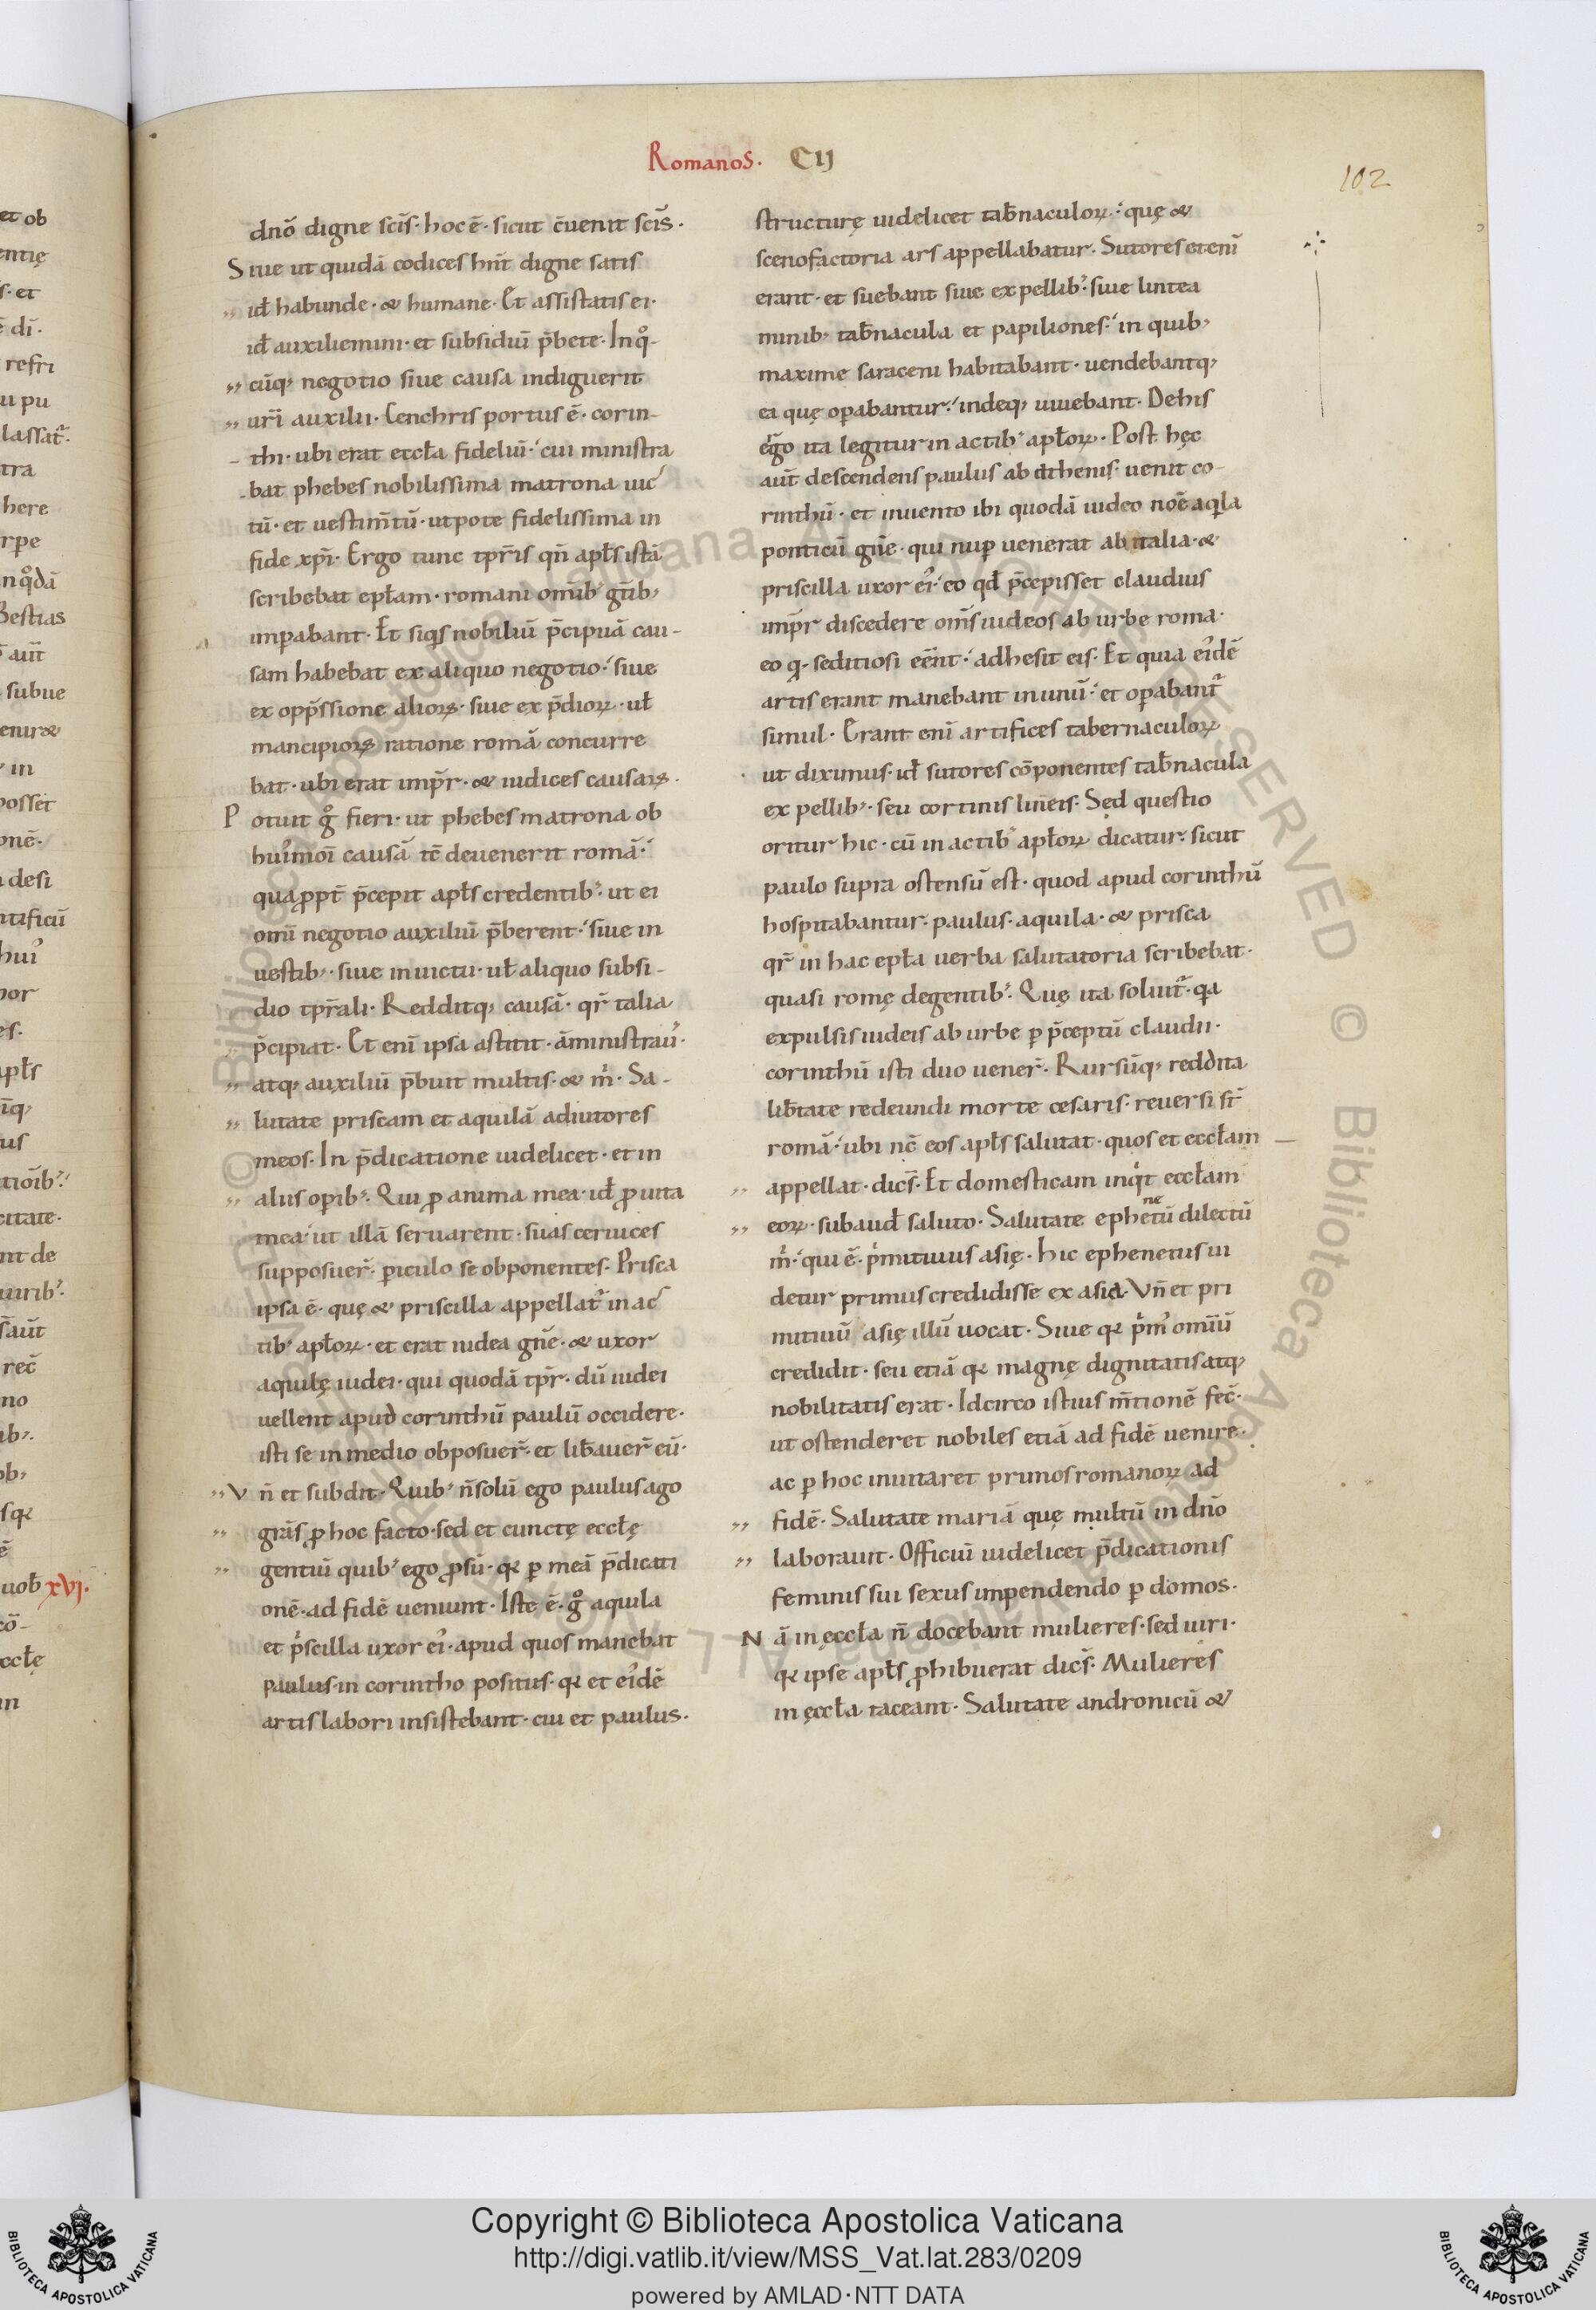 Romanos. CIJ
102
dnō digne scīs· hoc ē· sicut c̄uenit scīs·
Siue ut quidā codices hn̄t digne satis
id̄ habunde· & humane· Et assistatis ei·
id̄ auxiliemini· et subsidiū p̄bete· In q̊-
cūq; negotio siue causa indiguerit
urī auxilii· Cenchris portus ē· corin-
thi· ubi erat eccła fideliū· cui ministra
bat phebes nobilissima matrona uic
tū· et uestim̄tū· utpote fidelissima in
fide xp̄i· Ergo tunc tp̄ris qn̄ apłs istā
scribebat epłam· romani omīb; gt̄ib;
impabant· Et siqs nobiliū p̄cipuā cau-
sam habebat ex aliquo negotio· siue
ex opp̄ssione alioꝝ· siue ex p̄dioꝝ· uł
mancipioꝝ ratione romā concurre
bat· ubi erat imp̄r· & iudices causaꝝ·
Potuit g̊ fieri· ut phebes matrona ob
hui᾿moī causā tc̄ deuenerit romā·
quapropt̄ p̄cepit apłs credentib;· ut ei
omī negotio auxiliū p̄berent· siue in
uestib;· siue in uictu· uł aliquo subsi-
dio tp̄rali· Redditq; causā· qr̄ talia
p̄cipiat· Et enī ipsa astitit· āministrau᾿·
atq; auxiliū p̄buit multis· & m̍· Sa-
lutate priscam et aquilā adiutores
meos· In p̄dicatione uidelicet· et in
aliis oꝑib;· Qui ꝓ anima mea· id̄ ꝓ uita
mea ut illā seruarent· suas ceruices
supposuer̄· ꝑiculo se obponentes· Prisca
ipsa ē· quę & priscilla appellat᾿ in ac
tib; apłoꝝ· et erat iudea gn̄e· & uxor
aquilę iudei· qui quodā tp̄r· dū iudei
uellent apud corinthū paulū occidere·
isti se in medio obposuer̄· et lib̄auer̄ eū·
Vn̄ et subdit· Quib; n̄ solū ego paulus ago
grās ꝓ hoc facto· sed et cunctę eccłę
gentiū quib; ego ꝓsū· qꝛ ꝑ meā p̄dicati
onē· ad fidē ueniunt· Iste ē· g̊ aquila
et p̍scilla uxor ei᾿· apud quos manebat
paulus· in corintho positus· qꝛ et ei᾿dē
artis labori insistebant· cui et paulus·
structurę uidelicet tab̄naculoꝝ· quę &
scenofactoria ars appellabatur· Sutores etenī
erant· et suebant siue ex pellib;· siue lintea
minib; tab̄nacula et papiliones· in quib;
maxime saraceni habitabant· uendebantq;
ea quę opabantur· indeq; uiuebant· De his
ergo ita legitur in actib; apłoꝝ· Post hęc
aūt descendens paulus ab athenis· uenit co-
rinthū· et inuento ibi quodā iudeo noē aqla
ponticū gn̄e· qui nuꝑ uenerat ab italia· &
priscilla uxor ei᾿· eo qd̄ p̄cepisset claudius
imp̄r discedere om̄s iudeos ab urbe roma·
eo q· seditiosi eēnt· adhesit eis· Et quia ei᾿dē
artis erant manebant in unū· et opabant᾿
simul· Erant enī artifices tabernaculoꝝ
ut diximus· id̄ sutores cōponentes tab̄nacula
ex pellib;· seu cortinis lineis· Sed questio
oritur hic· cū in actib; apłoꝝ dicatur· sicut
paulo supra ostensū est· quod apud corinthū
hospitabantur· paulus· aquila· & prisca
qr̄ in hac epła uerba salutatoria scribebat·
quasi romę degentib;· Quę ita soluit᾿· qa
expulsis iudeis ab urbe ꝑ p̄ceptū claudii·
corinthū isti duo uener̄· Rursūq; reddita
lib̄tate redeundi morte cesaris· reuersi sr̄
romā· ubi nc̄ eos apłs salutat· quos et eccłam
appellat· dic̄s· Et domesticam inq̍t eccłam
eoꝝ· subaud̄ saluto· Salutate ephenetū dilectū
m̍· qui ē· p̍mitiuus asię· Hic ephenetus ui
detur primus credidisse ex asia· Vn̄ et pri
mitiuū asię illū uocat· Siue qꝛ p̍m᾿ omīū
credidit· seu etiā qꝛ magnę dignitatis atq;
nobilitatis erat· Idcirco istius m̄tionē fec̄·
ut ostenderet nobiles etiā ad fidē uenire·
ac ꝑ hoc inuitaret primos romanoꝝ ad
fidē· Salutate mariā quę multū in dn̄o
laborauit· Officiū uidelicet p̄dicationis
feminis sui sexus impendendo ꝑ domos·
Nā in ęccła n̄ docebant mulieres· sed uiri·
qꝛ ipse apłs ꝓhibuerat dic̄s· Mulieres
in ęccła taceant· Salutate andronicū &
Copyright © Biblioteca Apostolica Vaticana
http://digi.vatlib.it/view/MSS_Vat.lat.283/0209
powered by AMLAD·NTT DATA